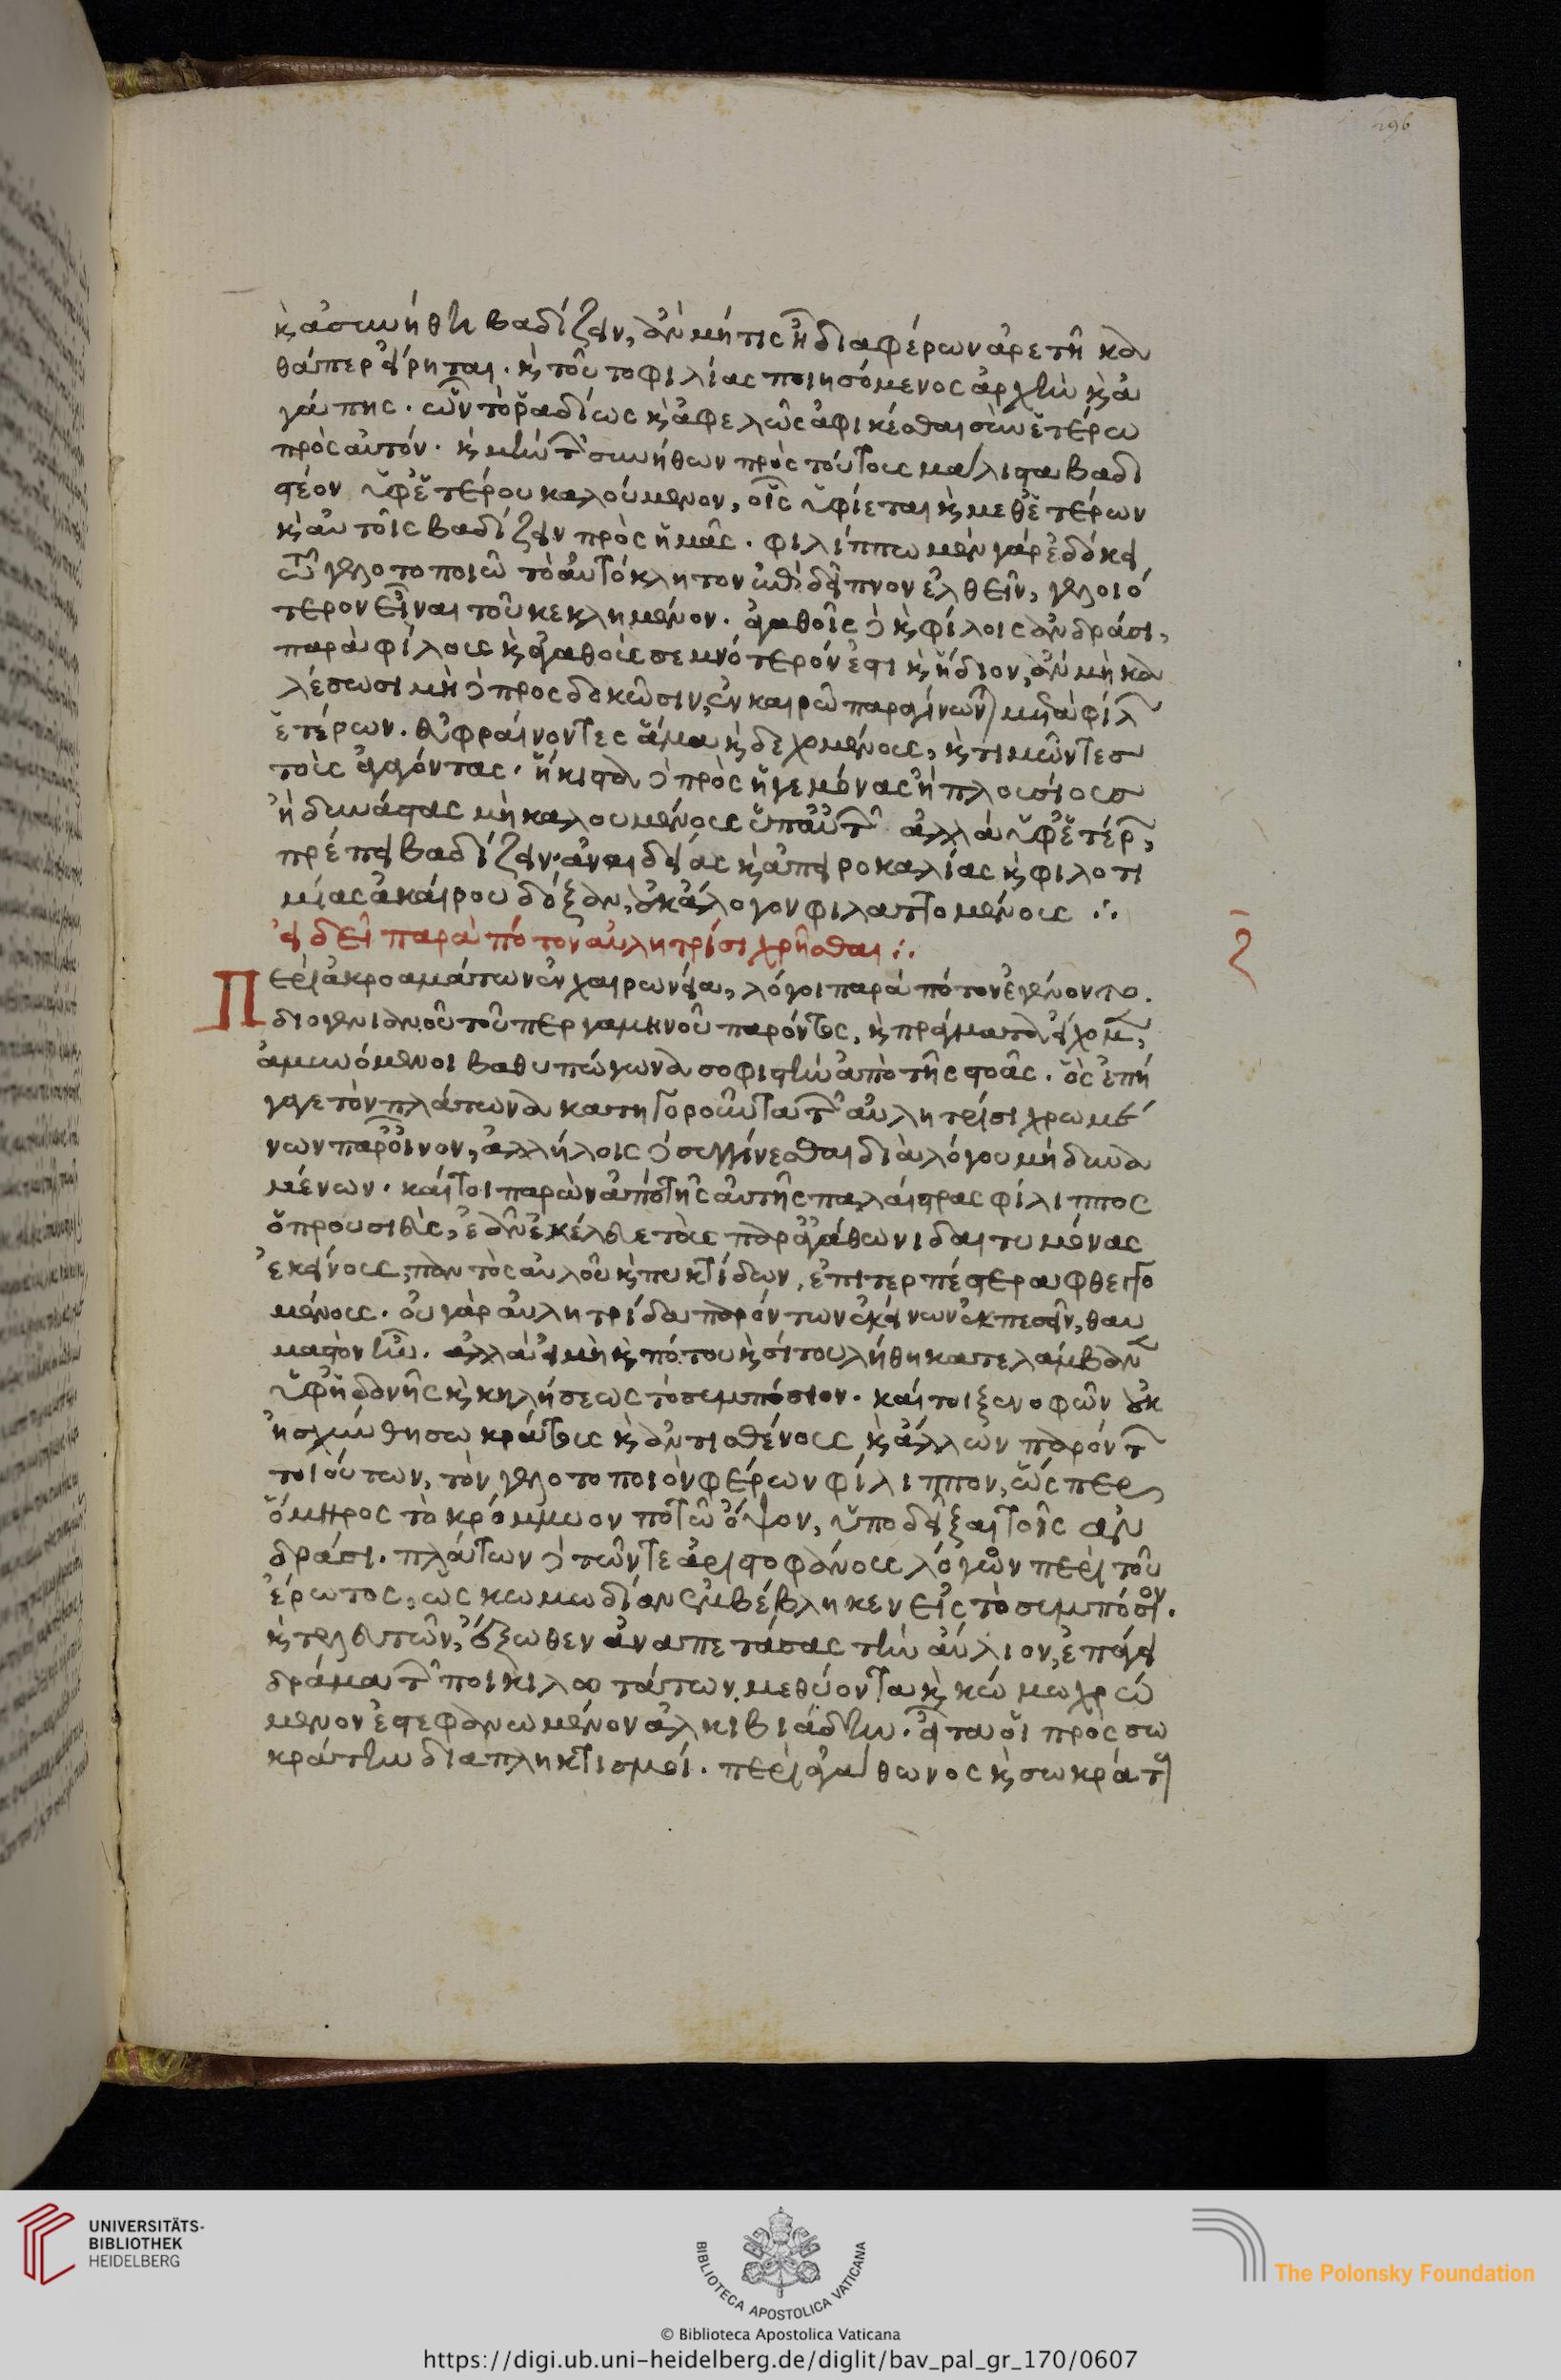 296
κ̀ ἀσυνήθη βαδίζειν, ἂν μή τις ἦ διαφέρων ἀρετῆ κα
θάπερ εἴρηται. κ̀ τοῦτο φιλίας ποιησόμενος ἀρχὴν κ̀ ἀ
γάπης. οὖν τὸ ῥαδίως κ̀ ἀφελῶς ἀφικέσθαι σὺν ἑτέρω
πρὸς αὐτόν. κ̀ μὴν τῶν συνήθων πρὸς τούτους μάλιστα βαδι
στέον ὑφ' ἑτέρου καλούμενον, οἷς ὑφίεται κ̀ μεθ' ἑτέρων
κ̀ αὐτοῖς βαδίζειν πρὸς ἡμᾶς. φιλίππω μὲν γὰρ ἐδόκει
τῶ γελοτοποιῶ τὸ αὐτόκλητον ἐπὶ δεῖπνον ἐλθεῖν, γελοιό
τερον εἶναι τοῦ κεκλημένον. ἀγαθοῖς δὲ κ̀ φίλοις ἀνδράσι,
παρὰ φίλους κ̀ ἀγαθοὺς σεμνότερόν ἐστι κ̀ ἥδιον, ἂν μὴ κα
λέσωσι μὴ δὲ προσδοκῶσιν, ἐν καιρῶ παραγίνωνται μετὰ φίλων
ἑτέρων. εὐφραίνοντες ἅμα κ̀ δεχομένους, κ̀ τιμῶντεσ
τοὺς ἀγαγόντας. ἥκιστα δὲ πρὸς ἡγεμόνας ἢ πλουσίουσ
ἢ δυνάστας μὴ καλουμένους ὑπ' αὐτῶν ἀλλὰ ὑφ' ἑτέρων,
πρέπει βαδίζειν. ἀναιδείας κ̀ ἀπειροκαλίας κ̀ φιλοτι
μίας ἀκαίρου δόξαν, οὐκ ἄλογον φιλαττομένους ∴
εἰ δεῖ παρὰ πότον αὐλητρίσι χρῆσθαι ∴
Περὶ ἀκροαμάτων ἐν χαιρωνεία, λόγοι παρὰ πότον ἐγένοντο.
διογενιανοῦ τοῦ περγαμηνοῦ παρόντος, κ̀ πράγματα εἴχομεν,
ἀμυνόμενοι βαθυπώγωνα σοφιστὴν ἀπὸ τῆς στοᾶς. ὃς ἐπή
γαγε τὸν πλάτωνα κατηγοροῦντα τῶν αὐλητρίσι χρωμέ
νων παρ' οἶνον, ἀλλήλοις δὲ συγγίνεσθαι διὰ λόγου μὴ δυνα
μένων. καίτοι παρὼν ἀπὸ τῆς αὐτῆς παλαίστρας φίλιππος
ὁ προυσιεὺς, ἐᾶν ἐκέλευε τοὺς παρ' ἀγάθωνι δαιτυμόνας
ἐκείνους, παντὸς αὐλοῦ κ̀ πυκτίδων, ἐπιτερπέστερα φθεγγο
μένους. οὐ γὰρ αὐλητρίδα παρόντων ἐκείνων ἐκπεσεῖν, θαυ
μαστὸν ἦν. ἀλλὰ εἰ μὴ κ̀ πότου κ̀ σίτου λήθη κατελάμβανεν
ὑφ' ἡδονῆς κ̀ κηλήσεως τὸ συμπόσιον. καίτοι ξενοφῶν οὐκ
ἠσχύνθη σωκράτους κ̀ ἀντισθένους κ̀ ἄλλων παρόντων
τοιούτων, τὸν γελοτοποιὸν φέρων φίλιππον, ὥσπερ
ὅμηρος τὸ κρόμμυον ποτῶ ὄψον, ὑποδεῖξαι τοῖς ἀν
δράσι. πλάτων δὲ τῶν τε ἀριστοφάνους λόγων περὶ τοῦ
ἔρωτος, ὡς κωμωδίαν ἐμβέβληκεν εἰς τὸ συμπόσιον.
κ̀ τελευτῶν, ἔξωθεν ἀναπετάσας τὴν αὔλιον, ἐπάγει
δράμα τῶν ποικιλωτάτων, μεθύοντα κ̀ κώμω χρώ
μενον ἐστεφανωμένον ἀλκιβιάδην. εἶτα οἱ πρὸς σω
κράτην διαπληκτισμοί. περὶ ἀγάθωνος κ̀ σωκράτους
ζ
UNIVERSITÄTS-
BIBLIOTHEK
HEIDELBERG
BIBLIOTECA APOSTOLICA VATICANA
The Polonsky Foundation
© Biblioteca Apostolica Vaticana
https://digi.ub.uni-heidelberg.de/diglit/bav_pal_gr_170/0607